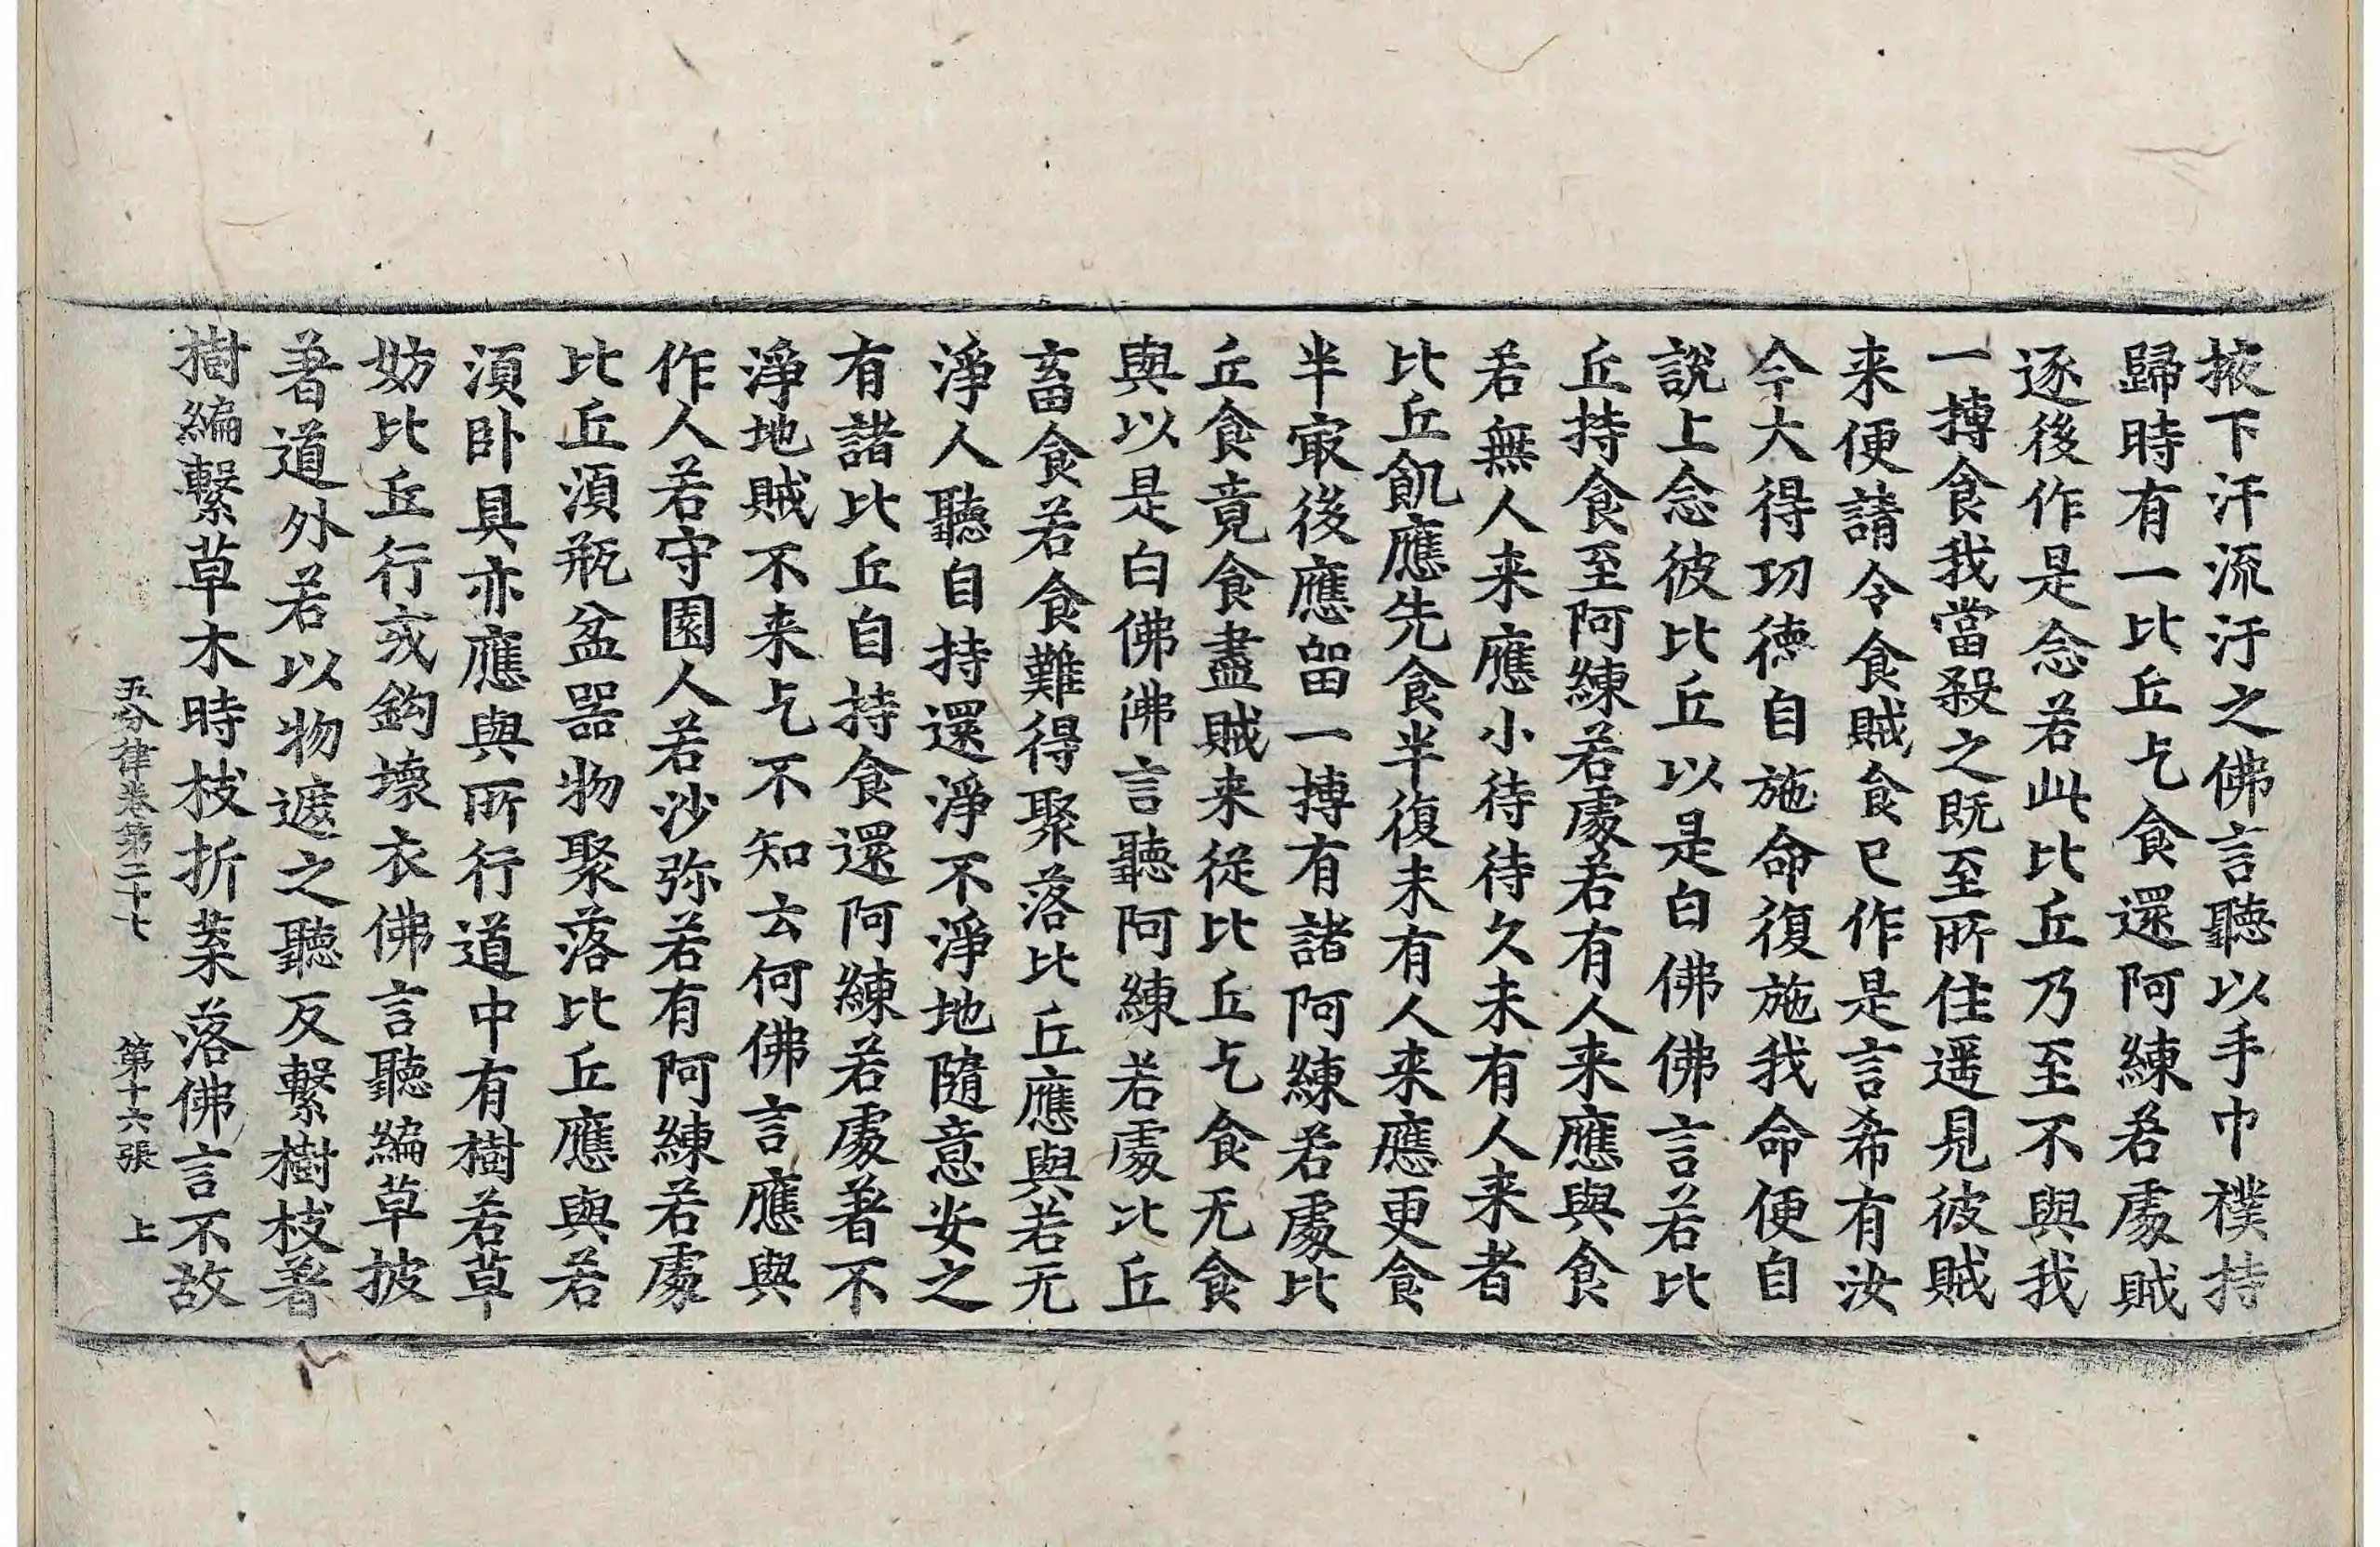 掖下汗流汙之佛言聽以手巾襆持
歸時有一比丘乞食還阿練若處賊
逐後作是念若此比丘乃至不與我
一摶食我當殺之既至所住遥見彼賊
来便請令食賊食已作是言希有汝
今大得功德自施命復施我命便自
說上念彼比丘以是白佛佛言若比
丘持食至阿練若處若有人来應與食
若無人来應小待待久未有人来者
比丘飢應先食半復未有人来應更食
半㝡後應留一摶有諸阿練若處比
丘食竟食盡賊来從比丘乞食无食
與以是白佛佛言聽阿練若處比丘
畜食若食難得聚落比丘應與若无
淨人聽自持還淨不淨地隨意安之
有諸比丘自持食還阿練若處著不
淨地賊不来乞不知云何佛言應與
作人若守園人若沙弥若有阿練若處
比丘湏瓶盆器物聚落比丘應與若
湏卧具亦應與所行道中有樹若草
妨比丘行或鈎壞衣佛言聽編草披
著道外若以物遮之聽反繫樹枝著
樹編繫草木時枝折葉落佛言不故
五分律卷第二十七　第十六張　上